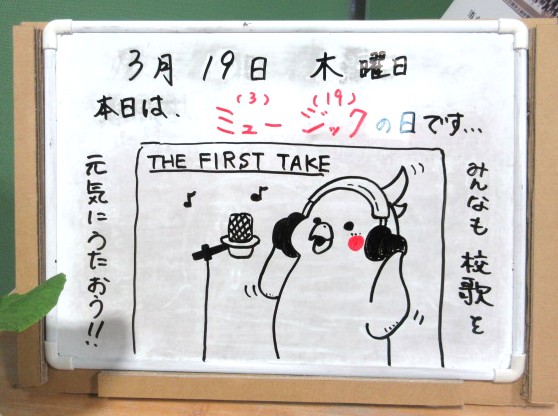 3月 19日 木 曜日
本日は、
(3) (19)
ミュージックの日です...
THE FIRST TAKE
みんなも 校歌を
元気にうたおう!!